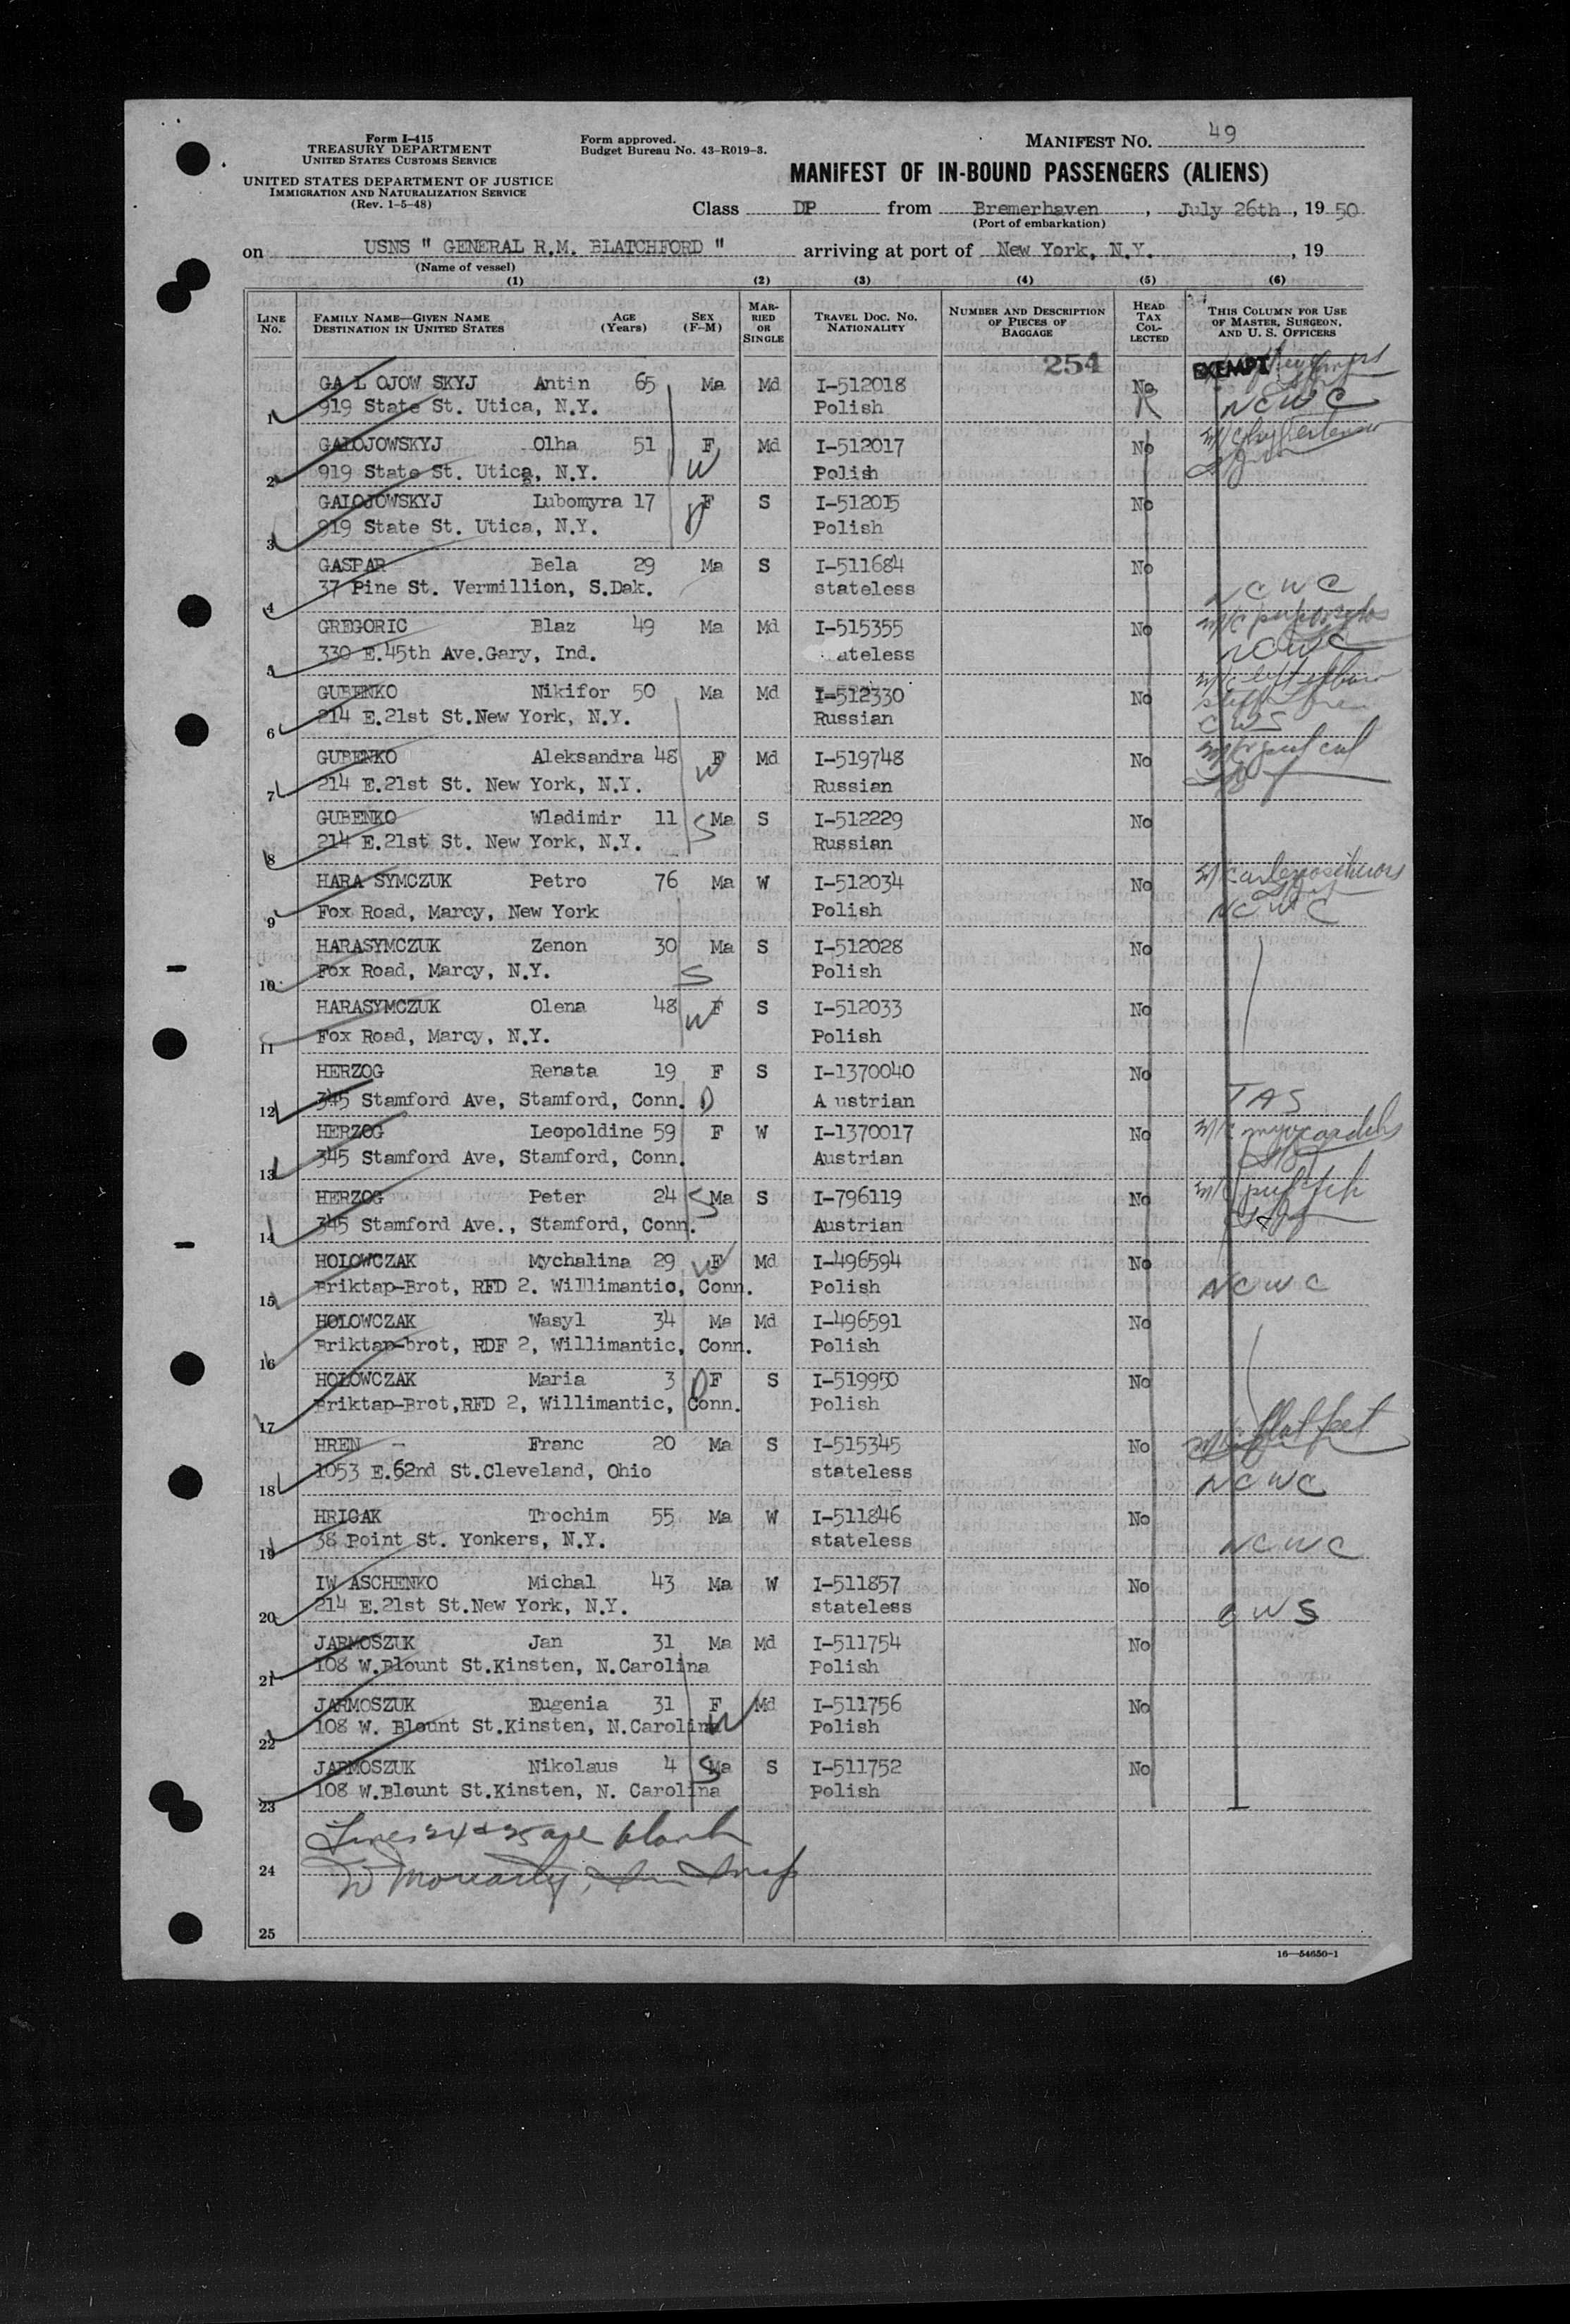 Form I-415
TREASURY DEPARTMENT
UNITED STATES CUSTOMS SERVICE
UNITED STATES DEPARTMENT OF JUSTICE
IMMIGRATION AND NATURALIZATION SERVICE
(Rev. 1-5-48)
Form approved.
Budget Bureau No. 43-R019-3.
MANIFEST NO. 49
MANIFEST OF IN-BOUND PASSENGERS (ALIENS)
Class DP from Bremerhaven, July 26th, 19 50
(Port of embarkation)
on USNS " GENERAL R.M. BLATCHFORD " arriving at port of New York, N.Y. , 19
(Name of vessel)
(1) (2) (3) (4) (5) (6)
LINE NO. FAMILY NAME—GIVEN NAME DESTINATION IN UNITED STATES AGE (Years) SEX (F-M) MARRIED OR SINGLE TRAVEL DOC. NO. NATIONALITY NUMBER AND DESCRIPTION OF PIECES OF BAGGAGE HEAD TAX COLLECTED THIS COLUMN FOR USE OF MASTER, SURGEON, AND U. S. OFFICERS
254 EXEMPT
GA L OJOW SKYJ Antin 65 Ma Md I-512018 No
1 919 State St. Utica, N.Y. Polish NCWC
GALOJOWSKYJ Olha 51 F Md I-512017 No
2 919 State St. Utica, N.Y. W Polish
GALOJOWSKYJ Lubomyra 17 F S I-512015 No
3 919 State St. Utica, N.Y. D Polish
GASPAR Bela 29 Ma S I-511684 No
4 37 Pine St. Vermillion, S.Dak. stateless NCWC
GREGORIC Blaz 49 Ma Md I-515355 No
5 330 E.45th Ave.Gary, Ind. ateless NCWC
GUBENKO Nikifor 50 Ma Md I-512330 No
6 214 E.21st St.New York, N.Y. Russian CWS
GUBENKO Aleksandra 48 F W Md I-519748 No
7 214 E.21st St. New York, N.Y. Russian
GUBENKO Wladimir 11 S Ma S I-512229 No
8 214 E.21st St. New York, N.Y. Russian
HARA SYMCZUK Petro 76 Ma W I-512034 No
9 Fox Road, Marcy, New York Polish NCWC
HARASYMCZUK Zenon 30 Ma S I-512028 No
10 Fox Road, Marcy, N.Y. S Polish
HARASYMCZUK Olena 48 F W S I-512033 No
11 Fox Road, Marcy, N.Y. Polish
HERZOG Renata 19 F S I-1370040 No
12 345 Stamford Ave, Stamford, Conn. D A ustrian TAS
HERZOG Leopoldine 59 F W I-1370017 No myocarditis
13 345 Stamford Ave, Stamford, Conn. Austrian
HERZOG Peter 24 S Ma S I-796119 No
14 345 Stamford Ave., Stamford, Conn. Austrian
HOLOWCZAK Mychalina 29 W F Md I-496594 No
15 Briktap-Brot, RFD 2. Willimantic, Conn. Polish NCWC
HOLOWCZAK Wasyl 34 Ma Md I-496591 No
16 Briktap-brot, RDF 2, Willimantic, Conn. Polish
HOLOWCZAK Maria 3 D F S I-519950 No
17 Briktap-Brot,RFD 2, Willimantic, Conn. Polish
HREN - Franc 20 Ma S I-515345 No flat feet
18 1053 E.62nd St.Cleveland, Ohio stateless NCWC
HRIGAK Trochim 55 Ma W I-511846 No
19 38 Point St. Yonkers, N.Y. stateless NCWC
IW ASCHENKO Michal 43 Ma W I-511857 No
20 214 E.21st St.New York, N.Y. stateless CWS
JARMOSZUK Jan 31 Ma Md I-511754 No
21 108 W.Blount St.Kinsten, N.Carolina Polish
JARMOSZUK Eugenia 31 F Md I-511756 No
22 108 W. Blount St.Kinsten, N.Carolina W Polish
JARMOSZUK Nikolaus 4 S Ma S I-511752 No
23 108 W.Blount St.Kinsten, N. Carolina Polish
Lines 24 & 25 are blank
24 W Moriarty, Insp
25
16—54650-1